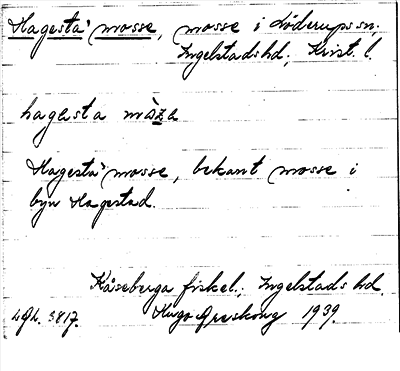 Hagesta mosse, mosse i Löderups sn;
Ingelstads hd; Krist. l.
hagesta
Hagesta mosse, bekant mosse i
byn Hagestad.
Kåseberga fiskel.; Ingelstads hd.
Hugo 1939.